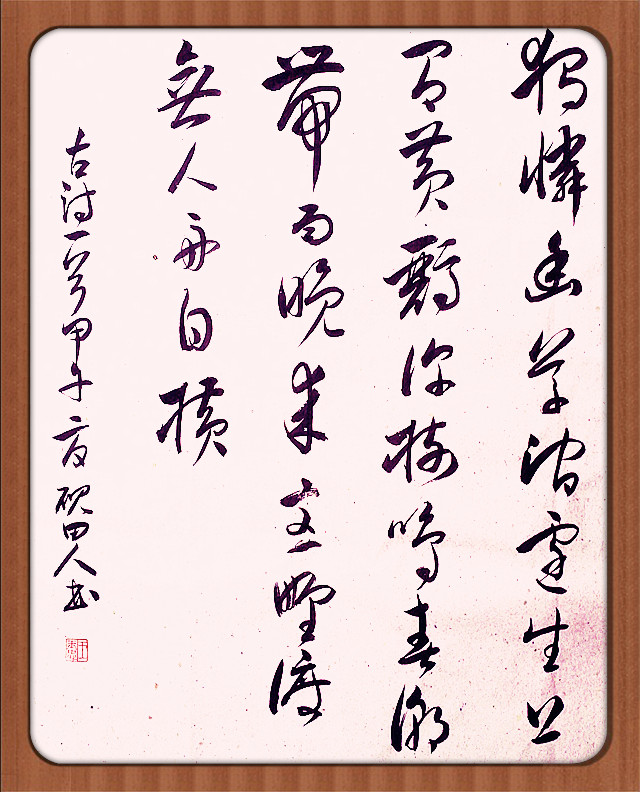 獨憐幽草澗邊生上
有黃鸝深樹鳴春潮
帶雨晚來急野渡
無人舟自橫
古詩一首甲午夏硯田人書